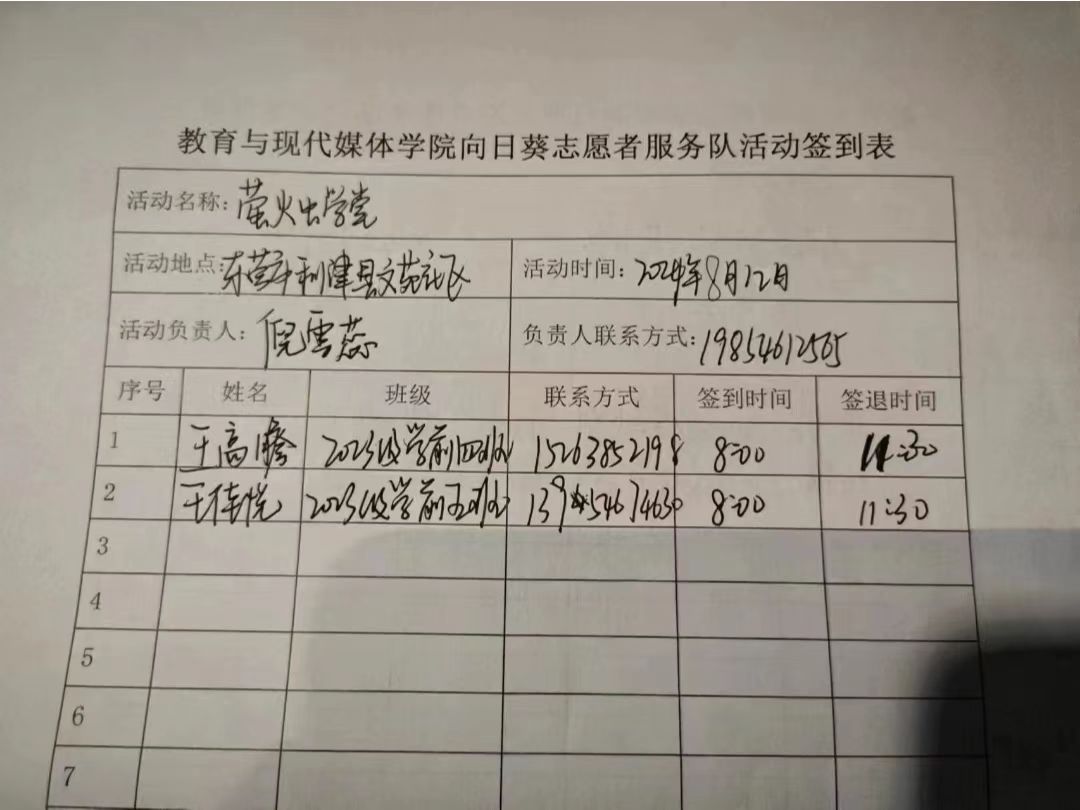 教育与现代媒体学院向日葵志愿者服务队活动签到表
活动名称: 萤火虫学堂
活动地点: 东营市利津县文苑社区 活动时间: 2024年8月12日
活动负责人: 倪雲蕊 负责人联系方式: 19854612565
序号 姓名 班级 联系方式 签到时间 签退时间
1 王高 2023级学前四班 15263852198 8:00 11:30
2 王佳悦 2023级学前五班 8:00 11:30
3
4
5
6
7